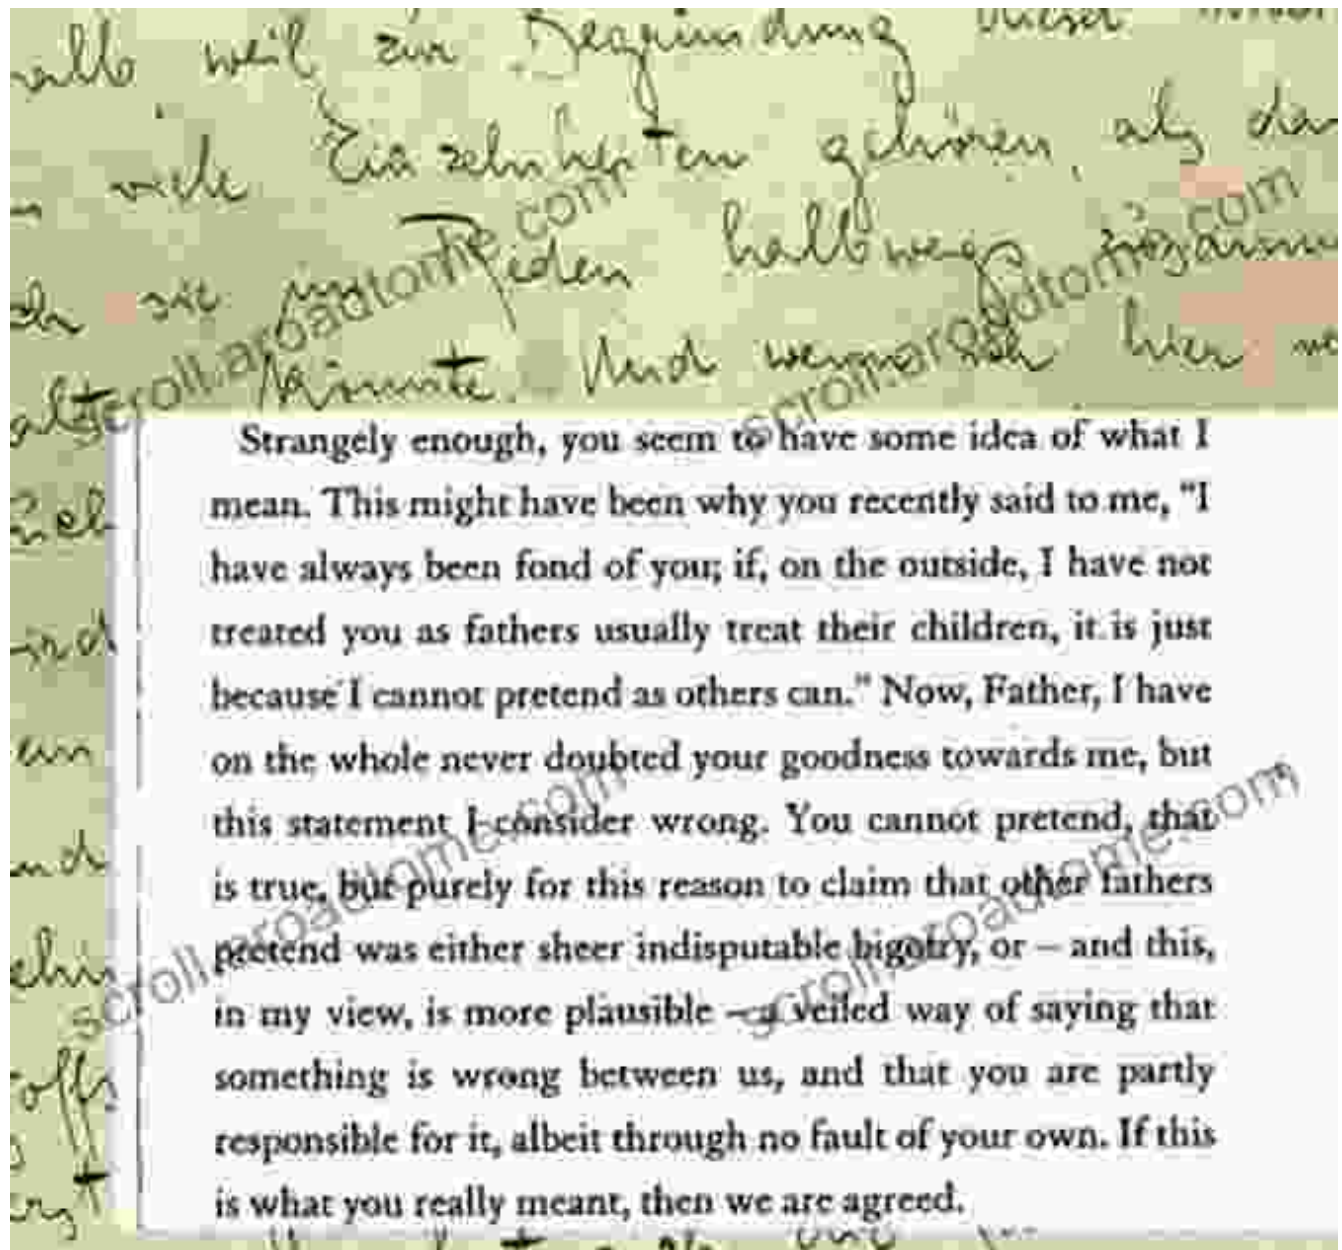 halb weil zur Begründung dieser
viele Einzelnheiten gehören, als
sie im Reden halbwegs
könnte. Und wenn ich hier
Strangely enough, you seem to have some idea of what I
mean. This might have been why you recently said to me, "I
have always been fond of you; if, on the outside, I have not
treated you as fathers usually treat their children, it is just
because I cannot pretend as others can." Now, Father, I have
on the whole never doubted your goodness towards me, but
this statement I consider wrong. You cannot pretend, that
is true, but purely for this reason to claim that other fathers
pretend was either sheer indisputable bigotry, or – and this,
in my view, is more plausible – a veiled way of saying that
something is wrong between us, and that you are partly
responsible for it, albeit through no fault of your own. If this
is what you really meant, then we are agreed.
scroll.aroadtome.com
scroll.aroadtome.com
scroll.aroadtome.com
scroll.aroadtome.com